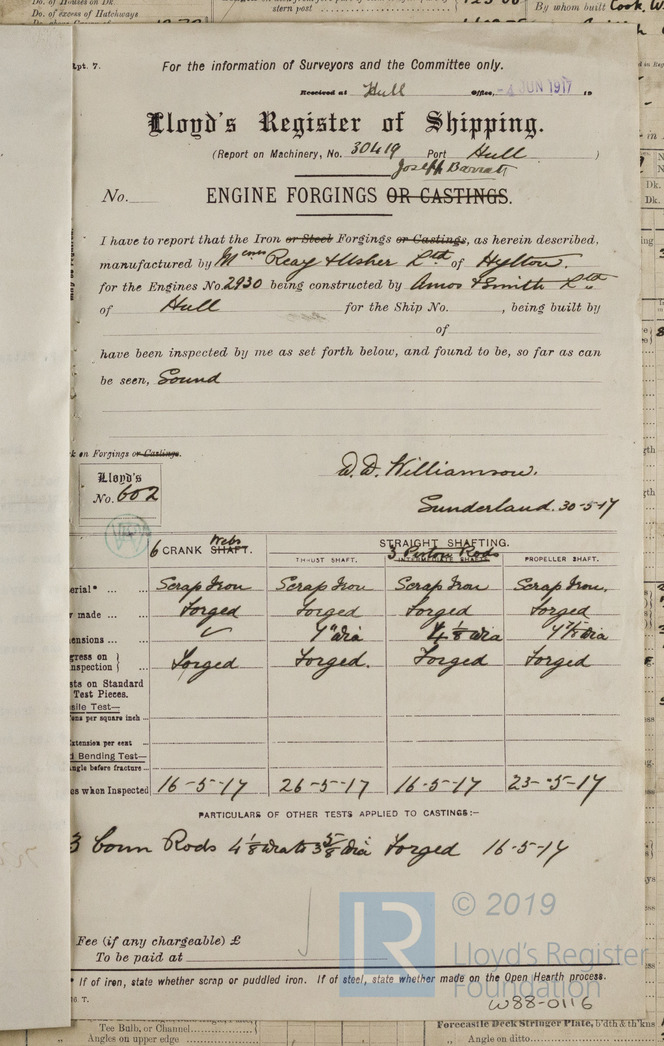 Do. of Houses on Dk.
Do. of excess of Hatchways
stern post
By whom built Cook, W
Rpt. 7.
For the information of Surveyors and the Committee only.
Received at Hull Office, -4 JUN 1917 19
Lloyd's Register of Shipping.
(Report on Machinery, No. 30419 Port Hull )
Joseph Barratt
No. ENGINE FORGINGS OR CASTINGS.
I have to report that the Iron or Steel Forgings or Castings, as herein described,
manufactured by Messrs Reay & Usher Ltd of Hylton.
for the Engines No. 2930 being constructed by Amos & Smith Ltd
of Hull for the Ship No. , being built by
of
have been inspected by me as set forth below, and found to be, so far as can
be seen, Sound
k on Forgings or Castings.
Lloyd's
No. 602
D.D. Williamson.
Sunderland. 30-5-17
6 CRANK SHAFT. Webs
STRAIGHT SHAFTING.
THRUST SHAFT. 3 Piston Rods INTERMEDIATE SHAFTS PROPELLER SHAFT.
erial* ... ... Scrap Iron Scrap Iron Scrap Iron Scrap Iron.
made ... Forged Forged Forged Forged
ensions ... ✓ 9" dia 4 1/8 dia 4 7/8 dia
gress on }
nspection } ... Forged Forged. Forged Forged
sts on Standard
Test Pieces.
sile Test—
ons per square inch ...
Extension per cent ...
d Bending Test—
ngle before fracture ...
es when Inspected 16-5-17 26-5-17 16-5-17 23-5-17
PARTICULARS OF OTHER TESTS APPLIED TO CASTINGS:-
3 Conn Rods 4 1/8 dia to 3 5/8 dia Forged 16-5-17
Fee (if any chargeable) £
To be paid at
© 2019
LR
Lloyd's Register
Foundation
* If of iron, state whether scrap or puddled iron. If of steel, state whether made on the Open Hearth process.
W88-0116
Tee Bulb, or Channel
Angles on upper edge
Forecastle Deck Stringer Plate, b'dth & th'kns
Angle on ditto